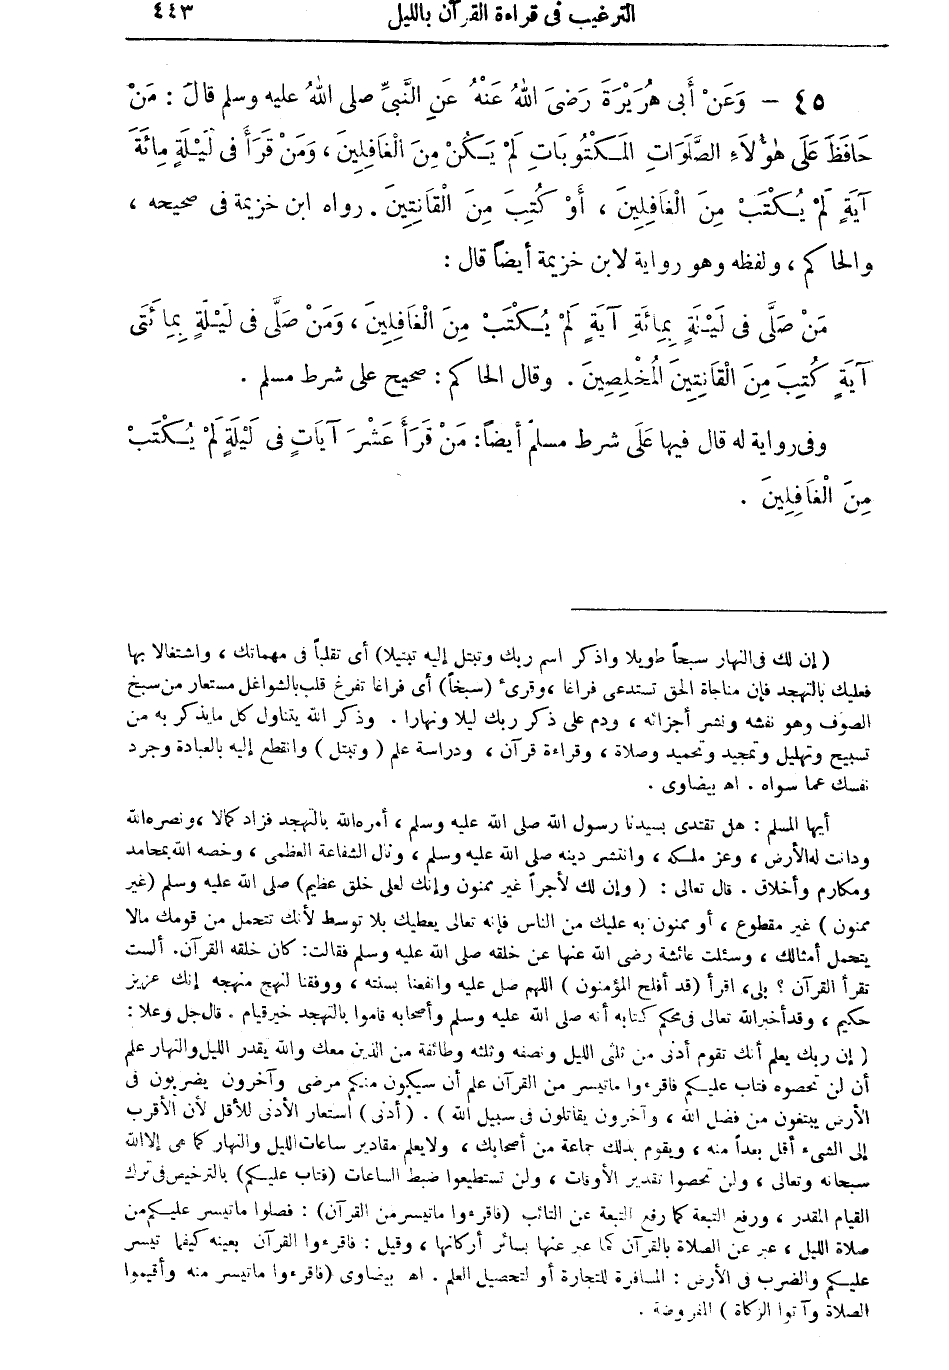 الترغيب فى قراءة القرآن بالليل ٤٤٣
٤٥ – وَعَنْ أَبى هُرَيْرَةَ رَضىَ اللهُ عَنْهُ عَنِ النَّبِىِّ صلى اللهُ عليه وسلم قالَ : مَنْ
حَافَظَ عَلَى هٰؤُلاَءِ الصَّلَوَاتِ المَكْتُوبَاتِ لَمْ يَكُنْ مِنَ الْغَافِلِينَ ، وَمَنْ قَرَأَ فى لَيْلَةٍ مِائَةَ
آيَةٍ لَمْ يُكْتَبْ مِنَ الْغَافِلِينَ ، أَوْ كُتِبَ مِنَ الْقَانِتِينَ . رواه ابن خزيمة فى صحيحه ،
والحاكم ، ولفظه وهو رواية لابن خزيمة أيضاً قال :
مَنْ صَلَّى فى لَيْلَةٍ بِمِائَةِ آيَةٍ لَمْ يُكْتَبْ مِنَ الْغَافِلِينَ ، وَمَنْ صَلَّى فى لَيْلَةٍ بِمِائَتَى
آيَةٍ كُتِبَ مِنَ الْقَانِتِينَ المُخْلِصِينَ . وقال الحاكم : صحيح على شرط مسلم .
وفى رواية له قال فيها عَلَى شرط مسلم أيضاً : مَنْ قَرَأَ عَشْرَ آيَاتٍ فى لَيْلَةٍ لَمْ يُكْتَبْ
مِنَ الْغَافِلِينَ .
( إن لك فى النهار سبحاً طويلا واذكر اسم ربك وتبتل إليه تبتيلا) أى تقلباً فى مهماتك ، واشتغالا بها
فعليك بالتهجد فإن مناجاة الحق تستدعى فراغا ، وقرىء (سبخاً) أى فراغا تفرغ قلب بالشواغل مستعار من سبخ
الصوف وهو نفشه ونشر أجزائه ، ودم على ذكر ربك ليلا ونهارا . وذكر الله يتناول كل مايذكر به من
تسبيح وتهليل وتمجيد وتحميد وصلاة ، وقراءة قرآن ، ودراسة علم ( وتبتل ) وانقطع إليه بالعبادة وجرد
نفسك عما سواه . اه بيضاوى .
أيها المسلم : هل تقتدى بسيدنا رسول الله صلى الله عليه وسلم ، أمره الله بالتهجد فزاد كمالا ، ونصره الله
ودانت له الأرض ، وعز ملكه ، وانتشر دينه صلى الله عليه وسلم ، ونال الشفاعة العظمى ، وخصه الله بمحامد
ومكارم وأخلاق . قال تعالى : ( وإن لك لأجراً غير ممنون وإنك لعلى خلق عظيم) صلى الله عليه وسلم (غير
ممنون ) غير مقطوع ، أو ممنون به عليك من الناس فإنه تعالى يعطيك بلا توسط لأنك تتحمل من قومك مالا
يتحمل أمثالك ، وسئلت عائشة رضى الله عنها عن خلقه صلى الله عليه وسلم فقالت: كان خلقه القرآن. ألست
تقرأ القرآن ؟ بلى، اقرأ (قد أفلح المؤمنون ) اللهم صل عليه وانفعنا بسنته ، ووفقنا لنهج منهجه إنك عزيز
حكيم ، وقد أخبر الله تعالى فى محكم كتابه أنه صلى الله عليه وسلم وأصحابه قاموا بالتهجد خير قيام . قال جل وعلا :
( إن ربك يعلم أنك تقوم أدنى من ثلثى الليل ونصفه وثلثه وطائفة من الذين معك والله يقدر الليل والنهار علم
أن لن تحصوه فتاب عليكم فاقرءوا ماتيسر من القرآن علم أن سيكون منكم مرضى وآخرون يضربون فى
الأرض يبتغون من فضل الله ، وآخرون يقاتلون فى سبيل الله ) . ( أدنى ) استعار الأدنى للأقل لأن الأقرب
إلى الشىء أقل بعداً منه ، ويقوم بذلك جماعة من أصحابك ، ولايعلم مقادير ساعات الليل والنهار كما هى إلا الله
سبحانه وتعالى ، ولن تحصوا تقدير الأوقات ، ولن تستطيعوا ضبط الساعات (فتاب عليكم) بالترخيص فى ترك
القيام المقدر ، ورفع التبعة كما رفع التبعة عن التائب (فاقرءوا ماتيسر من القرآن) : فصلوا ماتيسر عليكم من
صلاة الليل ، عبر عن الصلاة بالقرآن كما عبر عنها بسائر أركانها ، وقيل : فاقرءوا القرآن بعينه كيفما تيسر
عليكم والضرب فى الأرض : المسافرة للتجارة أو لتحصيل العلم . اه بيضاوى (فاقرءوا ماتيسر منه وأقيموا
الصلاة وآتوا الزكاة ) المفروضة .